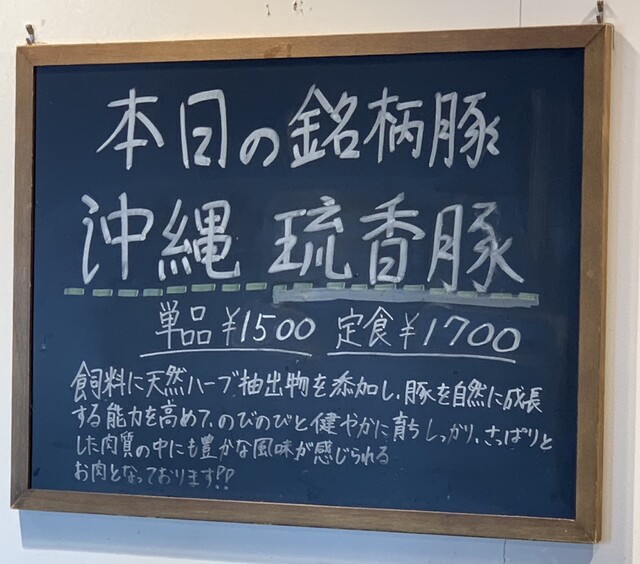 本日の銘柄豚
沖縄 琉香豚
単品¥1500 定食¥1700
飼料に天然ハーブ抽出物を添加し、豚を自然に成長
する能力を高めて、のびのびと健やかに育ちしっかり、さっぱりと
した肉質の中にも豊かな風味が感じられる
お肉となっております!!